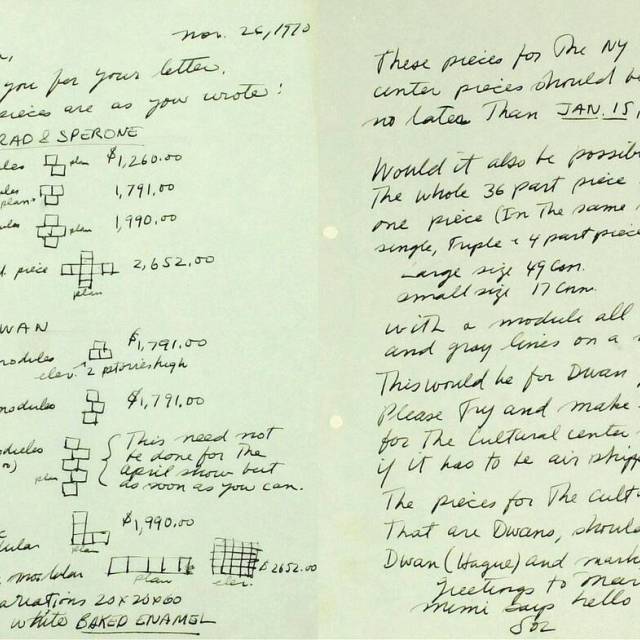 nov. 26, 1970
you for your letter.
pieces are as you wrote:
RAD & SPERONE
plan $1,260.00
plan 1,791.00
plan 1,990.00
piece 2,652.00
plan
WAN
modules $1,791.00
elev. 2 stories high
modules $1,791.00
plan
{ This need not
be done for the
April show but
as soon as you can.
$1,990.00
plan
modular $2652.00
plan elev.
variations 20x20x60
white BAKED ENAMEL
These pieces for The NY
center pieces should be
no later Than JAN. 15,
Would it also be possib
The whole 36 part piece
one piece (In The same
single, Triple & 4 part piece
Large size 49 cm.
small size 17 cm.
with a module all
and gray lines on a
This would be for Dwan
Please Try and make
for The Cultural center
if it has to be air shipp
The pieces for The Cult
That are Dwans, should
Dwan (Hague) and mark
Greetings to
Mimi says hello
Sol